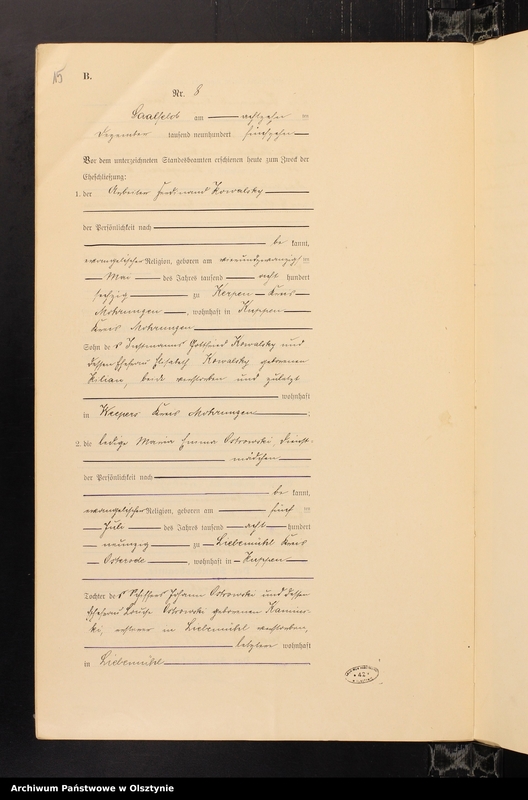 B.
Nr. 8
Saalfeld am achtzehn ten
Dezember tausend neunhundert fünfzehn
Vor dem unterzeichneten Standesbeamten erschienen heute zum Zweck der
Eheschließung:
1. der Arbeiter Ferdinand Kowalsky
der Persönlichkeit nach
be kannt,
evangelischer Religion, geboren am vierundzwanzigs ten
Mai des Jahres tausend acht hundert
sechzig zu Kerpen Kreis
Mohrungen, wohnhaft in Kuppen
Kreis Mohrungen
Sohn des Instmannes Gottfried Kowalsky und
dessen Ehefrau Elisabeth Kowalsky geborenen
Kilian, beide verstorben und zuletzt
wohnhaft
in Kreis Mohrungen;
2. die ledige Maria Emma Ostrowski, Dienst-
mädchen
der Persönlichkeit nach
be kannt,
evangelischer Religion, geboren am fünf ten
Juli des Jahres tausend acht hundert
neunzig zu Liebemühl Kreis
Osterode, wohnhaft in Kuppen
Tochter des Schiffers Johann Ostrowski und dessen
Ehefrau Louise Ostrowski geborenen
ersterer in Liebemühl verstorben,
letztere wohnhaft
in Liebemühl
Archiwum Państwowe w Olsztynie